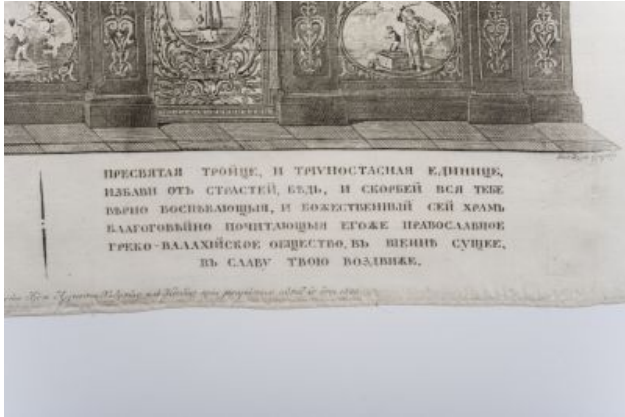 ПРЕСВЯТАЯ ТРОЙЦЕ, И ТРІУПОСТАСНАЯ ЕДИНИЦЕ,
ИЗБАВИ ОТЪ СТРАСТЕЙ, БѢДЪ, И СКОРБЕЙ ВСЯ ТЕБЕ
ВѢРНО ВОСПѢВАЮЩЫЯ, И БОЖЕСТВЕННЫЙ СЕЙ ХРАМЪ
БЛАГОГОВѢЙНО ПОЧИТАЮЩЫЯ ЕГОЖЕ ПРАВОСЛАВНОЕ
ГРЕКО-ВАЛАХІЙСКОЕ ОБЩЕСТВО, ВЪ ВІЕННѢ СУЩЕЕ,
ВЪ СЛАВУ ТВОЮ ВОЗДВИЖЕ.